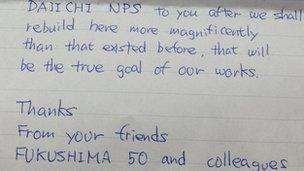 DAIICHI NPS to you after we shall
rebuild here more magnificently
than that existed before, that will
be the true goal of our works.
Thanks
From your friends
FUKUSHIMA 50 and colleagues